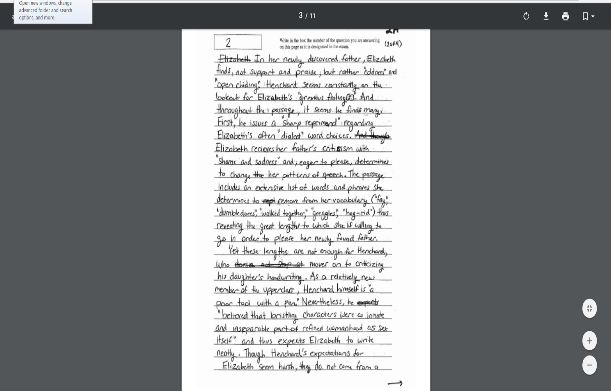 Open new windows, change
advanced folder and search
options, and more.
3 / 11
2
2A
Write in the box the number of the question you are answering
on this page as it is designated in the exam.
(2 of 4)
Elizabeth In her newly discovered father, Elizabeth
finds, not support and praise, but rather "coldness" and
"open chiding." Henchard seems constantly on the
lookout for Elizabeth's "grievous failing(s)." And
throughout the passage, it seems he finds many.
First, he issues a "sharp reprimand" regarding
Elizabeth's often "dialect" word choices. And though
Elizabeth receives her father's criticism with
"shame and sadness" and, eager to please, determines
to change the her patterns of speech. The passage
includes an extensive list of words and phrases she
determines to remove from her vocabulary ("fay,"
"dumbledores," "walked together," "greggles," "hag-rid") thus
revealing the great lengths to which she is willing to
go in order to please her newly found father.
Yet these lengths are not enough for Henchard,
who moves on to criticizing
his daughter's handwriting. As a relatively new
member of the upperclass, Henchard himself is "a
poor tool with a pen." Nevertheless, he expects
"believed that bristling characters were as innate
and inseparable part of refined womanhood as sex
itself" and thus expects Elizabeth to write
neatly. Though Henchard's expectations for
Elizabeth seem harsh, they do not come from a